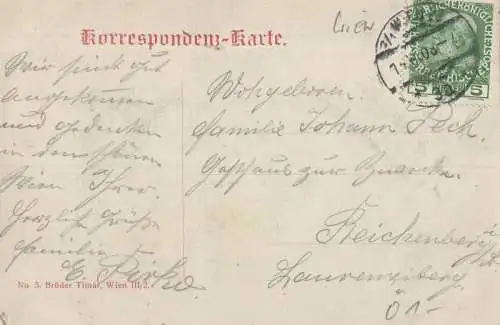 Wien
Korrespondenz-Karte.
Wir sind gut
angekommen
und gedenken
in den schönen
Wien Ihrer.
Herzliche Grüße
Familie
E. Pirko
Wohgeboren
Familie Johann Pech.
Gasthaus zur
Reichenberg
Laurenziberg
Ö 1-
No 5. Brüder Timár, Wien III/2.
5